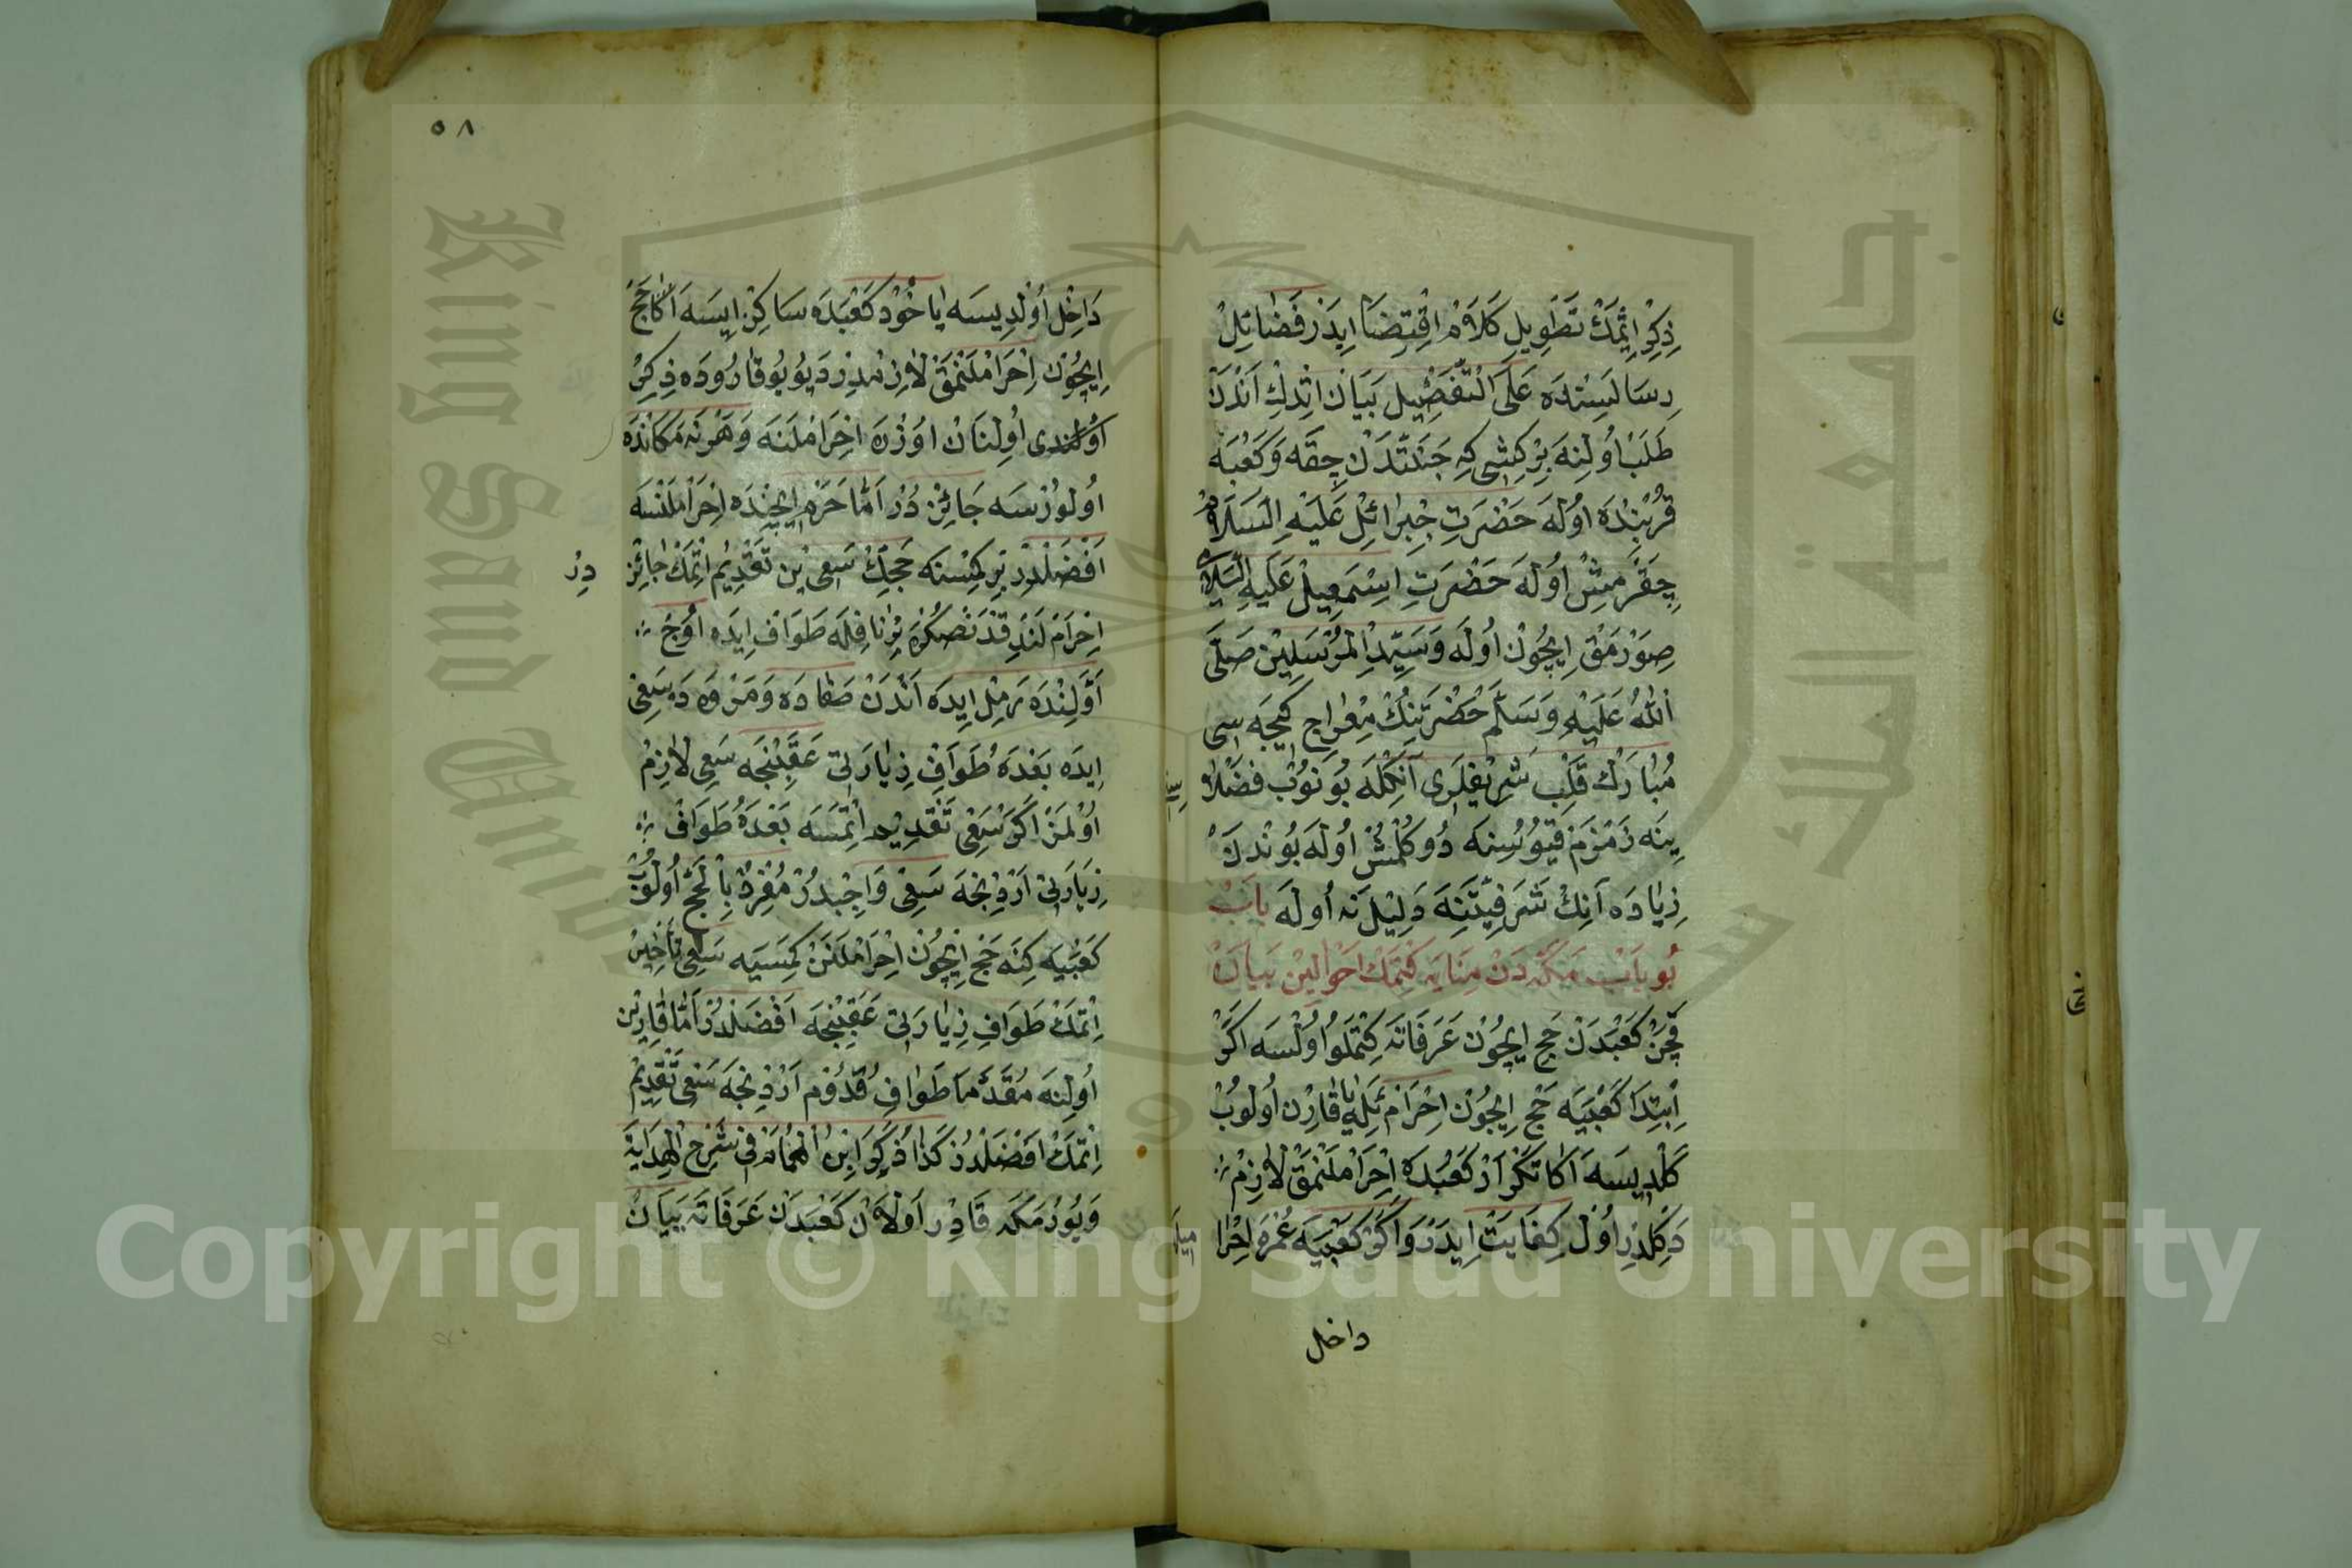 ذِكِرْ اِتْمَكْ تَطْوِيلِ كَلَامْ اِقْتِضَا اِيدَرْ فَضَائِلْ
رِسَالَسِنْدَه عَلَى التَّفْصِيلِ بَيَانْ اِتْدِكْ اَنْدَنْ
طَلَبْ اُولِنَه بِرْ كِشِى كِه جَنَّتْدَنْ چِقَه وَكَعْبَه
قُرْبِنْدَه اُولَه حَضْرَتِ جِبْرَائِلْ عَلَيْهِ السَّلَامْ
چِقَرْمِشْ اُولَه حَضْرَتِ اِسْمَعِيلْ عَلَيْهِ السَّلَامْ
صِوَرْمَقْ اِيچُونْ اُولَه وَسَيِّدِ الْمُرْسَلِينْ صَلَّى
اللهُ عَلَيْهِ وَسَلَّمْ حَضْرَتِنِكْ مِعْرَاج كِيجَه سِى
مُبَارَكْ قَلْبِ شَرِيفْلَرِى اَنِكْلَه يُونُوبْ فَضْلَا
سِنَه زَمْزَمْ قَيُوسِنَه دُوكُلْمُشْ اُولَه بُونْدَنْ
زِيَادَه اَنِكْ شَرَفِيَّتِنَه دَلِيلْ نَه اُولَه بَابْ
بُو بَابْ مَكَّه دَنْ مِنَايَه كِتْمَكْ اَحْوَالِينْ بَيَانْ
قَچَنْ كَعْبَدَنْ حَج اِيچُونْ عَرَفَاتَه كِتْمَلُو اُولْسَه اَكَرْ
اِبْتِدَا كَعْبَيَه حَج اِيچُونْ اِحْرَامْ ئِلَه يَا قَارِنْ اُولُوبْ
كَلْدِيسَه اَكَا تَكْرَارْ كَعْبَدَه اِحْرَامْلَنْمَقْ لَازِمْ
دَكِلْدِرْ اُولْ كِفَايَتْ اِيدَرْ وَاَكَرْ كَعْبَيَه عُمْرَه اِحْرَا
مِيلَه
داخل
٥٨
دَاخِلْ اُولْدِيسَه يَا خُودْ كَعْبَدَه سَاكِنْ اِيسَه اَكَا حَجّ
اِيچُونْ اِحْرَامْلَنْمَقْ لَازِمْدِرْ دَيُو يُوقَارُودَه ذِكِرْ
اُولِنَانْ اُوزْرَه اِحْرَامْلَنَه وَهَرْ نَه مَكَانْدَه
اُولُورْسَه جَائِزْ دُرْ اَمَّا حَرَمْ اِيچِنْدَه اِحْرَامْلَنْسَه
اَفْضَلْدِرْ بِرْ كِمْسَنَه حَجِّكْ سَعْيِنْ تَقْدِيمْ اِتْمَكْ جَائِزْ
دِرْ
اِحْرَامْلَنْدِقْدَنْصُكْرَه بِرْ نَافِلَه طَوَافْ اِيدَه اُوچْ
اَوَّلِنْدَه رَمِلْ اِيدَه اَنْدَنْ صَفَادَه وَمَرْوَه دَه سَعِىْ
اِيدَه بَعْدَهُ طَوَافِ زِيَارَتِى عَقِبِنْجَه سَعِى لَازِمْ
اُولْمَزْ اَكَرْ سَعْيِى تَقْدِيم اِتْمَسَه بَعْدَهُ طَوَافْ
زِيَارَتِى اَرْدِنْجَه سَعِىْ وَاجِبْدُرْ مُفْرِدْ بِالْحَجّ اُولُوبْ
كَعْبَيَه كِنَه حَجّ اِيچُونْ اِحْرَامْلَنَنْ كِمْسَيَه سَعِى تَأْخِيرْ
اِتْمَكْ طَوَافِ زِيَارَتِى عَقِبِنْجَه اَفْضَلْدُرْ اَمَّا قَارِنْ
اُولِنَه مُقَدَّمَا طَوَافِ قُدُومْ اَرْدِنْجَه سَعِى تَقْدِيمْ
اِتْمَكْ اَفْضَلْدُرْ كَذَا ذَكَرَ اِبْنُ الْهُمَامْ فِى شَرْحِ الْهِدَايَة
وَبُو دُرْ مَكَّه قَادِرْ اُولَانْ كَعْبَدَنْ عَرَفَاتَه بَيَانْ